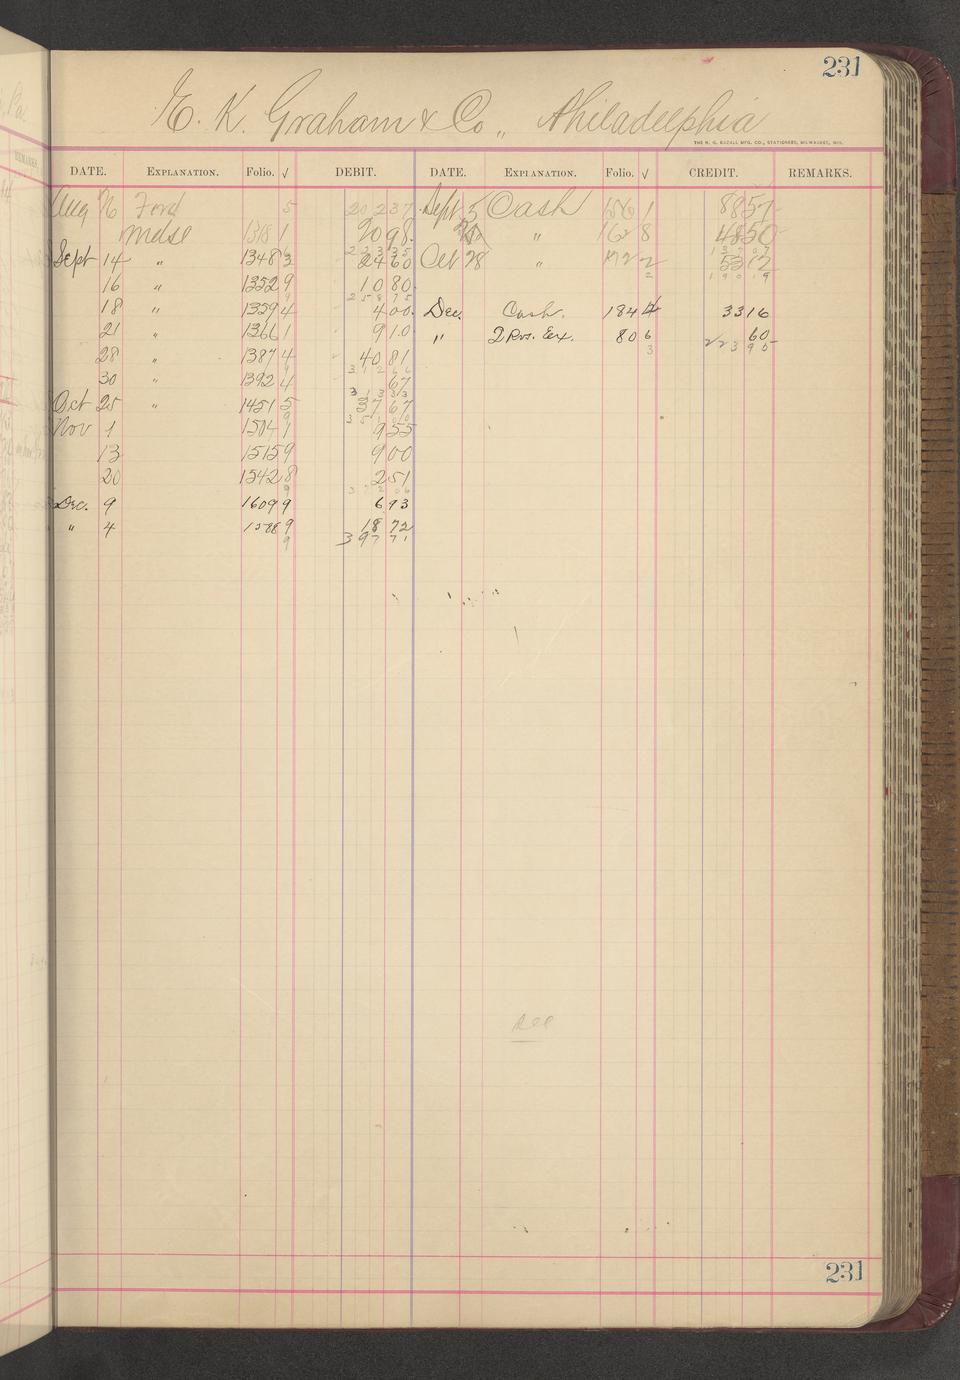 231
E. K. Graham & Co., Philadelphia
THE H. G. RAZALL MFG. CO., STATIONERS, MILWAUKEE, WIS.
DATE. EXPLANATION. Folio. √ DEBIT. DATE. EXPLANATION. Folio. √ CREDIT. REMARKS.
Aug 16 Ford 5 202 37 Sept 5 Cash 156 1 88 57
Mdse 1318 1 20 98 " 162 8 48 50
223 35 137 07
Sept 14 " 1348 3 24 60 Oct 28 " 172 2 53 12
2 190 19
16 " 1352 9 10 80
9 258 75
18 " 1359 4 4 00 Dec. Cash. 184 4 33 16
21 " 1366 1 9 10 " 2 Rvs. Ex. 80 6 60
3 223 95
28 " 1387 4 40 81
312 66
30 " 1392 4 67
313 33
Oct 25 " 1451 5 37 67
9 351 00
Nov 1 1504 1 9 55
13 1515 9 9 00
20 1542 8 2 51
9 372 06
Dec. 9 1609 9 6 93
" 4 1588 9 18 72
9 397 71
231